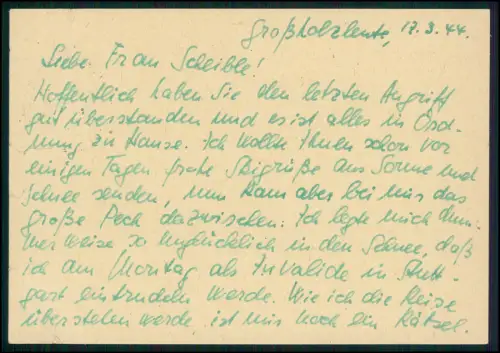 Großholzleute, 17.3.44.
Liebe Frau Scheible!
Hoffentlich haben Sie den letzten Angriff
gut überstanden und es ist alles in Ord-
nung zu Hause. Ich wollte Ihnen schon vor
einigen Tagen frohe Skigrüße aus Sonne und
Schnee senden, nun kam aber bei mir das
große Pech dazwischen. Ich legte mich dum-
merweise so unglücklich in den Schnee, daß
ich am Montag als Invalide in Stutt-
gart eintrudeln werde. Wie ich die Reise
überstehen werde, ist mir noch ein Rätsel.